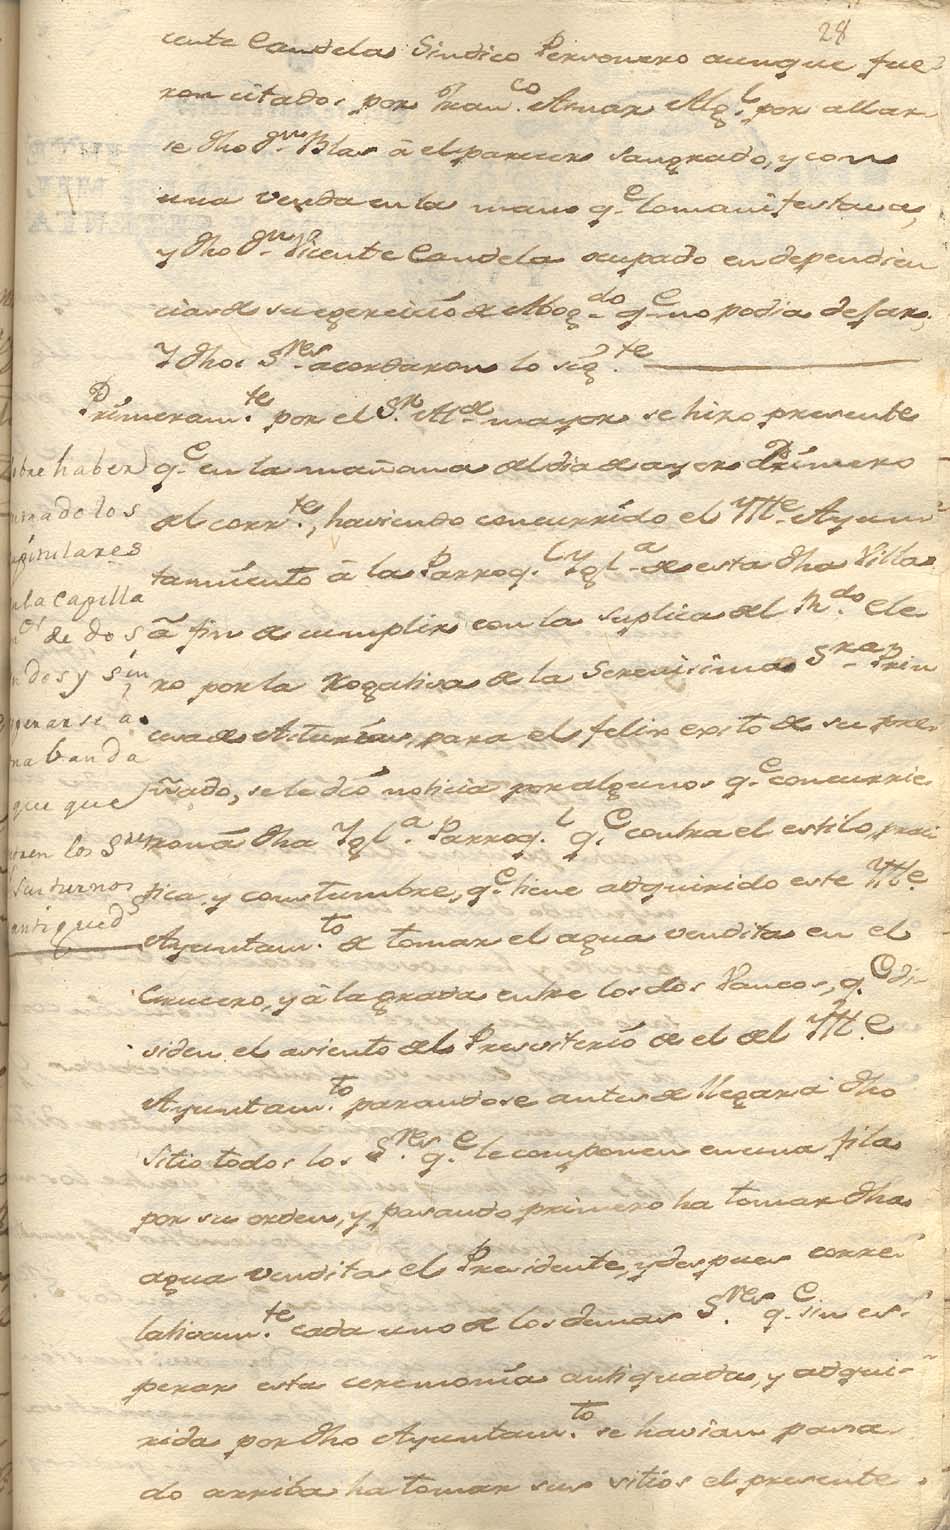 28
cente Candela Sindico Personero aunque fue-
ron citados por Fran.co Aznar Alg.l por allar-
se dho D.n Blas â el parecer sangrado, y con
una venda en la mano q.e lo manifestava,
y dho D.n Vicente Candela ocupado en dependen
cias de su egercicio de Abog.do q.e no podia dejar,
Y dhos S.res acordaron lo sig.te
Primeram.te por el S.r Alc.e mayor se hizo presente
q.e en la mañana del dia de ayer Primero
del corr.te, haviendo concurrido el Ytt.e Ayun-
tamiento â la Parroq.l Ygl.a de esta dha Villa
â fin de cumplir con la suplica del R.do Cle
ro por la Rogativa de la Serenisima S.ra Prin
cesa de Asturias, para el feliz exito de su pre-
ñado, se le dió noticia por algunos q.e concurrie-
ron â dha Ygl.a Parroq.l q.e contra el estilo, prac
tica, y constumbre, q.e tiene adquirido este Ytt.e
Ayuntam.to de tomar el agua vendita en el
Crucero, y â la grada entre los dos Vancos, q.e di-
viden el asiento del Presviterio de el del Ytt.e
Ayuntam.to parandose antes de llegar â dho
sitio todos los S.res q.e le componen en una fila
por su orden, y pasando primero ha tomar dha
agua vendita el Presidente, y despues corre-
lativam.te cada uno de los demas S.res q.e sin es-
perar esta ceremonia antiquada, y adqui-
rida por dho Ayuntam.to se havian pasa-
do arriba ha tomar sus sitios el presente
haber
los
la Capilla
de dos
y Sin
se a
banda
que que
los S.res
sus turnos
antigued.s